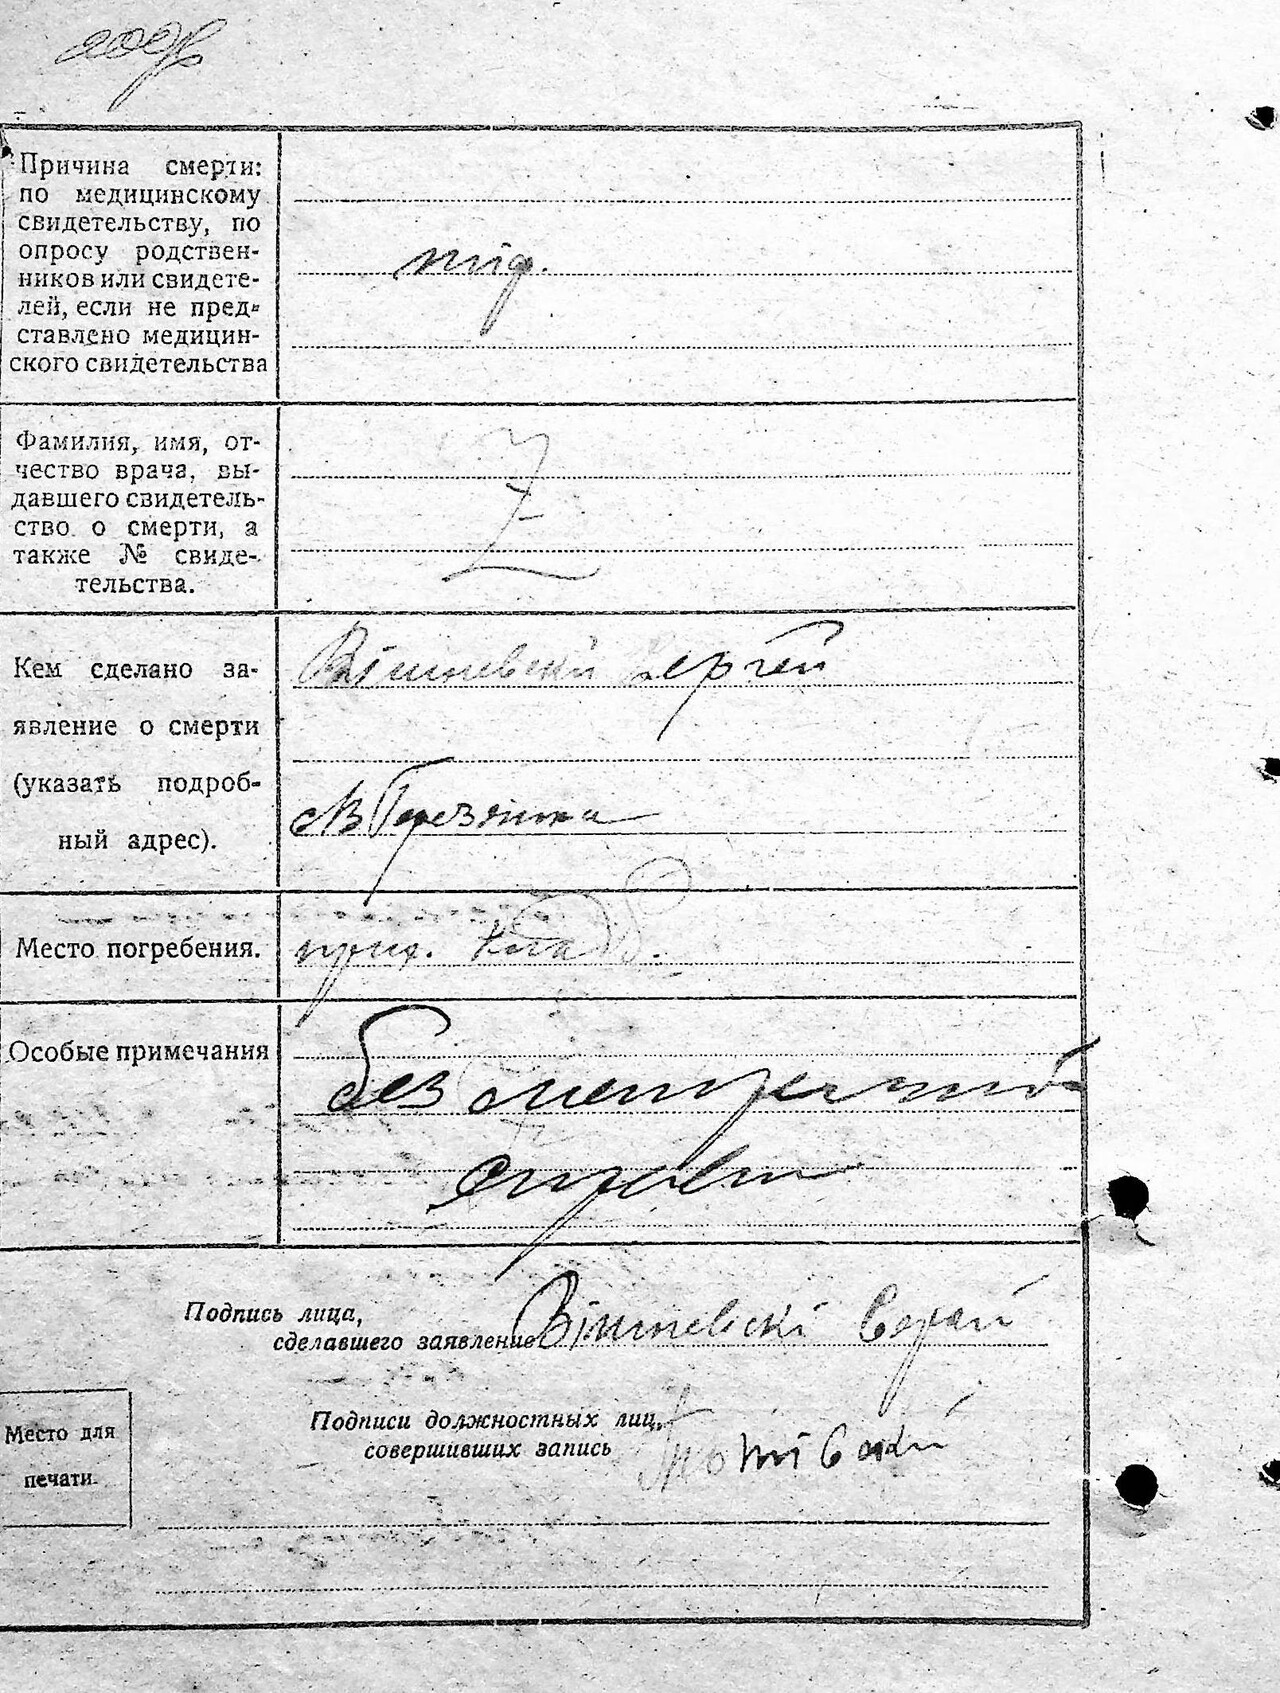 Причина смерти:
по медицинскому
свидетельству, по
опросу родствен-
ников или свидете-
лей, если не пред-
ставлено медицин-
ского свидетельства
тіф.
Фамилия, имя, от-
чество врача, вы-
давшего свидетель-
ство о смерти, а
также № свиде-
тельства.
Z
Кем сделано за-
явление о смерти
(указать подроб-
ный адрес).
Вішневскй Сергей
с Березянка
Место погребения.
прих. клад.
Особые примечания
без
справки
Подпись лица,
сделавшего заявление Вішневскі Сергій
Место для
печати.
Подписи должностных лиц,
совершивших запись